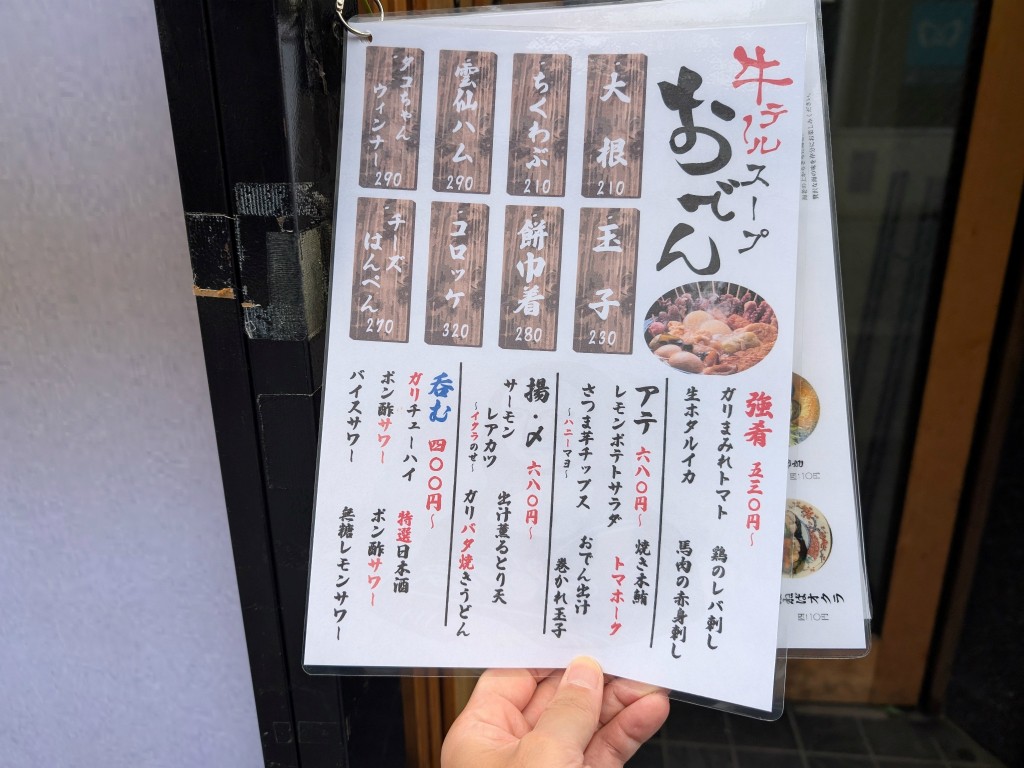 牛テールスープ
おでん
大根
210
ちくわぶ
210
雲仙ハム
290
タコちゃん
ウィンナー
290
玉子
230
餅巾着
280
コロッケ
320
チーズ
はんぺん
270
強肴 五三〇円〜
ガリまみれトマト
鶏のレバ刺し
生ホタルイカ
馬肉の赤身刺し
アテ 六八〇円〜
レモンポテトサラダ
トマホーク
焼き本鮪
さつま芋チップス
〜ハニーマヨ〜
おでん出汁
巻かれ玉子
揚・〆 六八〇円〜
サーモン
レアカツ
〜イクラのせ〜
出汁薫るとり天
ガリバタ焼きうどん
呑む 四〇〇円〜
ガリチューハイ
特選日本酒
ポン酢サワー
ポン酢サワー
バイスサワー
無糖レモンサワー
オクラ